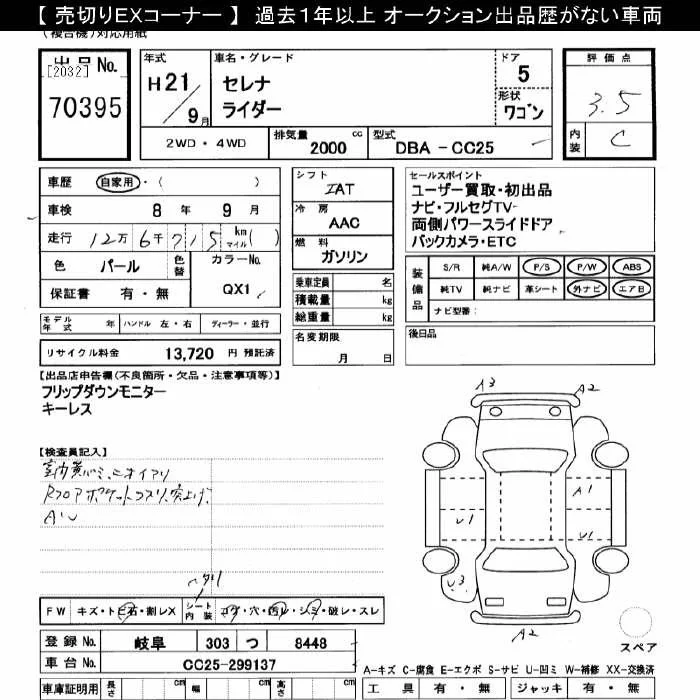 【 売切りEXコーナー 】 過去1年以上 オークション出品歴がない車両
(複合機)対応用紙
出品No.
[2032]
70395
年式
H21
9月
車名・グレード
セレナ
ライダー
ドア
5
形状
ワゴン
2WD ・ 4WD
排気量 cc
2000
型式
DBA - CC25
評価点
3.5
内装
C
車歴 自家用・( )
車検 8 年 9 月
走行 12万 6千 715 km マイル ( )
色 パール 色替
カラーNo.
保証書 有・無
QX1
シフト
IAT
冷房
AAC
燃料
ガソリン
乗車定員 名
積載量 kg
総重量 kg
名変期限
月 日
セールスポイント
ユーザー買取・初出品
ナビ・フルセグTV-
両側パワースライドドア
バックカメラ・ETC
装備品
S/R 純A/W P/S P/W ABS
純TV 純ナビ 革シート 外ナビ エアB
ナビ型番:
モデル年式 年 ハンドル 左・右 ディーラー・並行
リサイクル料金 13,720 円 預託済
後日品
【出品店申告欄(不良箇所・欠品・注意事項等)】
フリップダウンモニター
キーレス
【検査員記入】
Rフロアポケットコスリ、突上げ、
A3
A2
A1
U1
U1
U3
A2
スペア
FW キズ・トビ石・割レX
シート内装 コゲ・穴・汚レ・シミ・破レ・スレ
登録No. 岐阜 303 つ 8448
車台No. CC25-299137
A-キズ C-腐食 E-エクボ S-サビ U-凹ミ W-補修 XX-交換済
車庫証明用 長さ cm 幅 cm 高さ cm
工具 有・無 ジャッキ 有・無